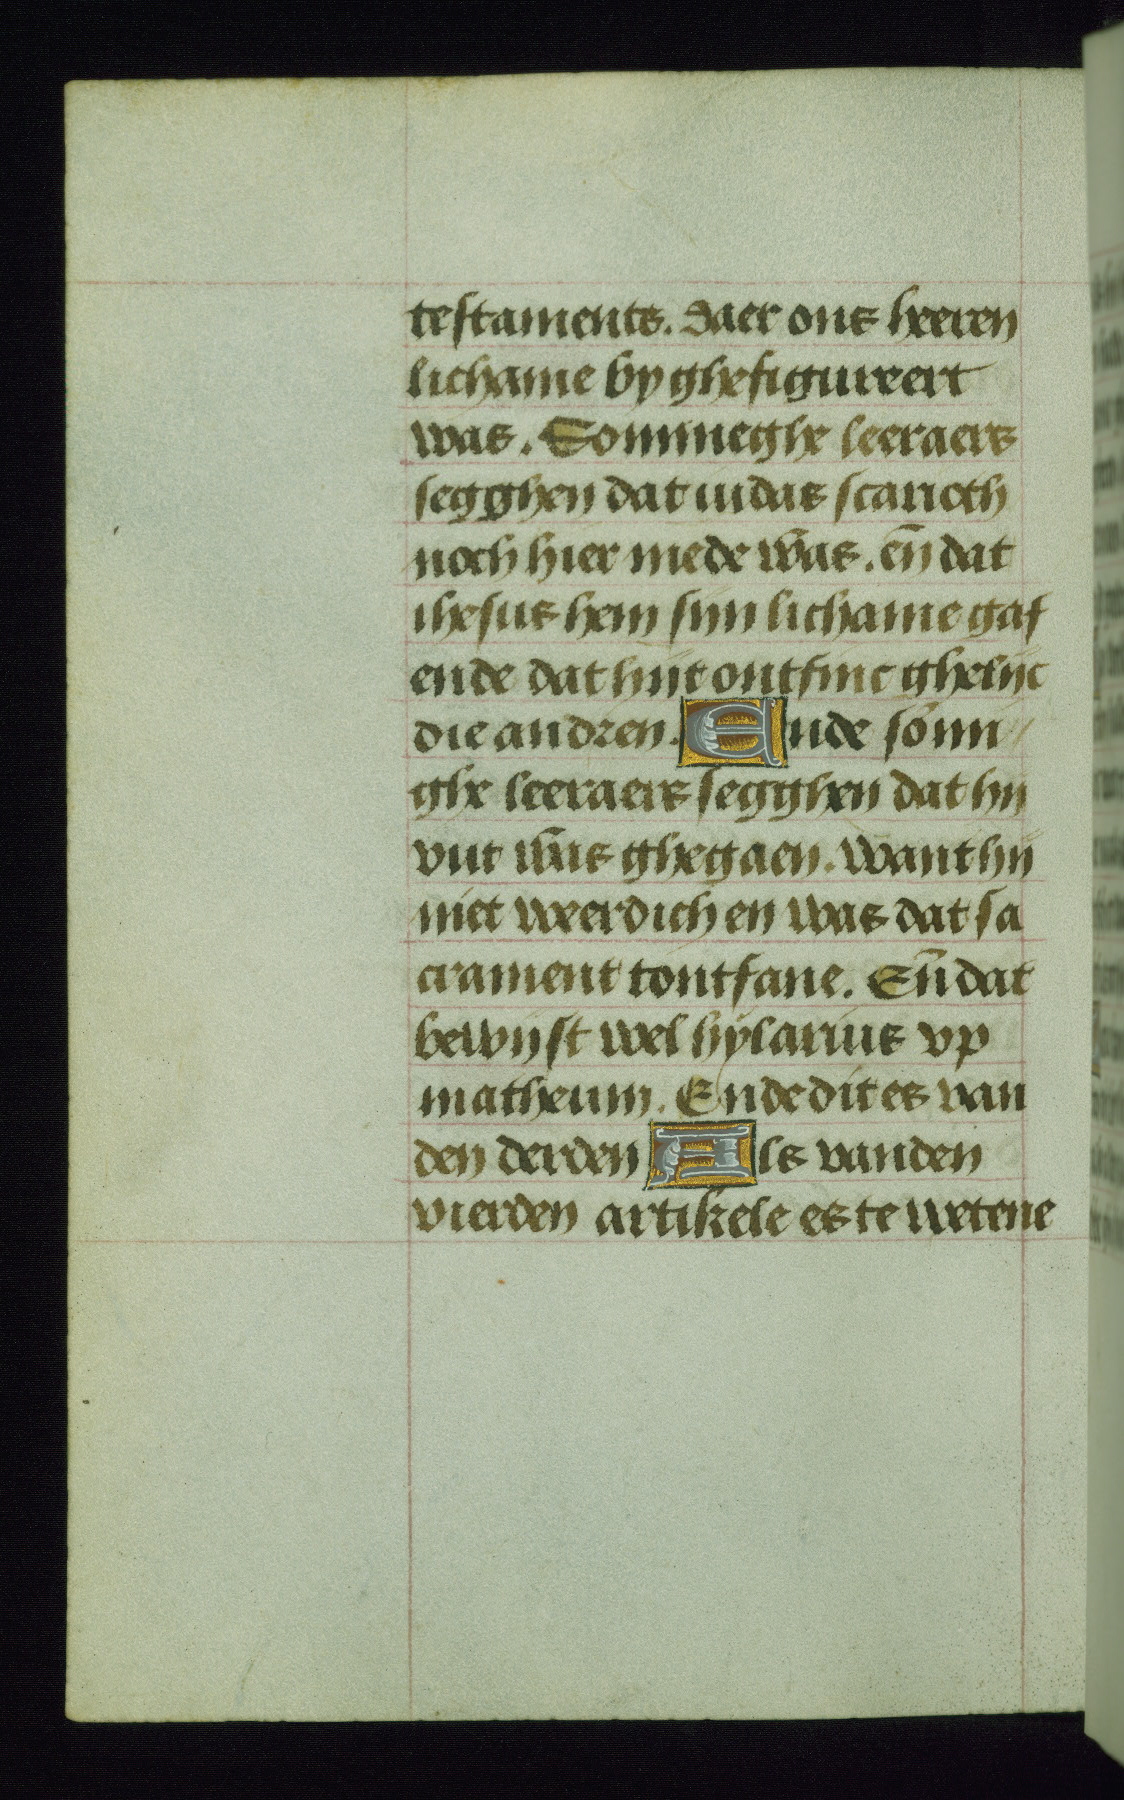 testaments. Daer ons heeren
lichame by ghefigureert
was. Sommeghe leeraers
segghen dat iudas scarioth
noch hier mede was. en̄ dat
ihesus hem sijn lichame gaf
ende dat hijt ontfinc ghelijc
die andren. Ende som̄
ghe leeraers segghen dat hij
vut was ghegaen. Want hij
niet weerdich en was dat sa
crament tontfane. En̄ dat
bewijst wel hylarius vp
matheum. Ende dit es van
den derden Als vanden
vierden artikele es te wetene